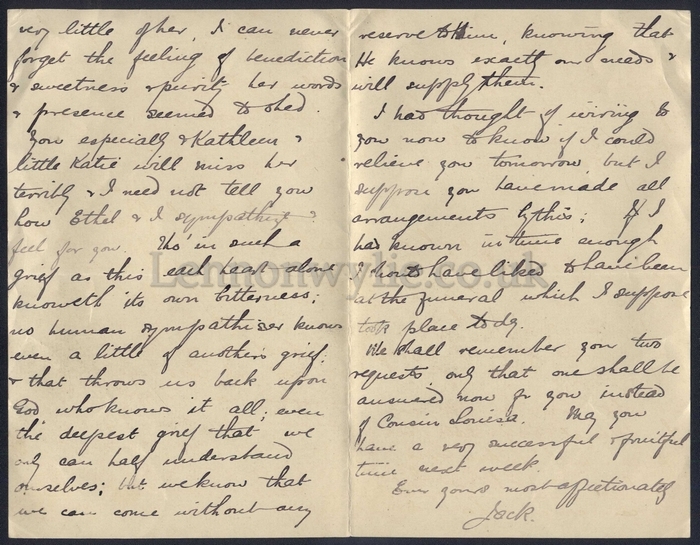 very little of her, I can never
forget the feeling of benediction
& sweetness & purity her words
& presence seemed to shed.
You especially & Kathleen &
little Katie will miss her
terribly & I need not tell you
how Ethel & I sympathise &
feel for you. Tho' in such a
grief as this each heart alone
knoweth its own bitterness;
no human sympathiser knows
even a little of another's grief:
& that throws us back upon
God who knows it all; even
the deepest grief that we
only can half understand
ourselves; but we know that
we can come without any
reserve to Him, knowing that
He knows exactly our needs &
will supply them.
I had thought of wiring to
you now to know if I could
relieve you tomorrow but I
suppose you have made all
arrangements by this; If I
had known in time enough
I should have liked to have been
at the funeral which I suppose
took place to day.
We shall remember you two
requests only that one shall be
answered now for you instead
of Cousin Louisa. May you
have a very successful & fruitful
time next week.
Ever yours most affectionately
Jack.
Lennonwylie.co.uk